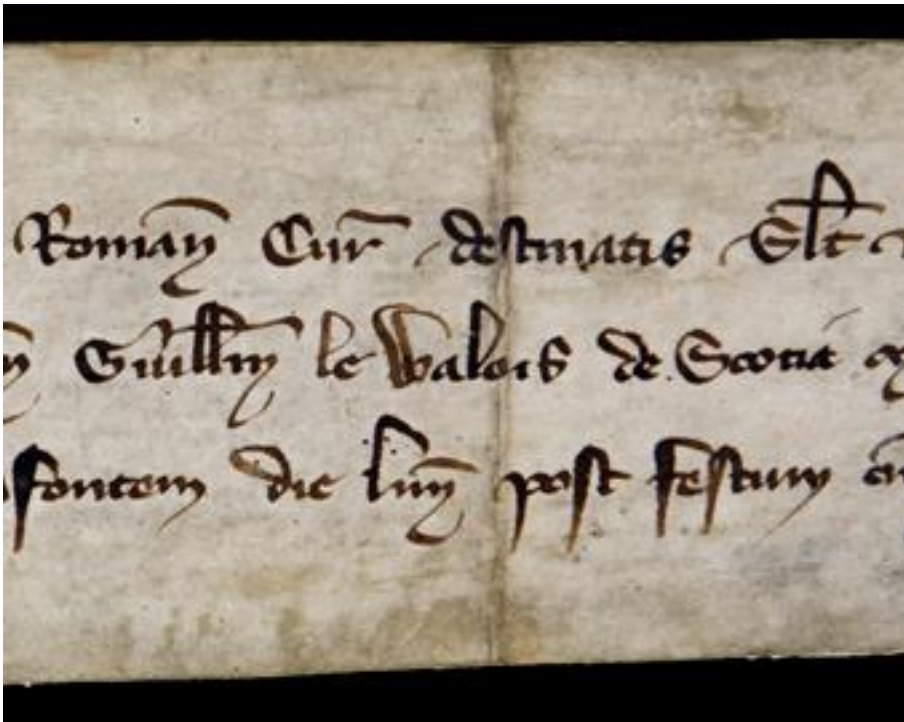 Romañ Cur̃ destinatis Sl̃t
Guill̃m le Walois de Scotia
fontem die lun̄ post festum